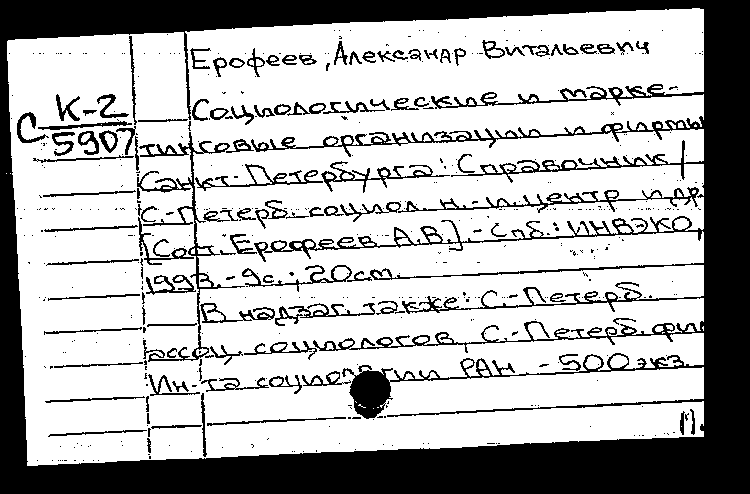 Ерофеев, Александр Витальевич
С К-2
5907
Социологические и марке-
тинговые организации и фирмы
Санкт-Петербурга: Справочник /
С.-Петерб. социол. н.-и. центр и др.
[Сост. Ерофеев А.В.]. - Спб.: ИНВЭКО,
1993. - 9с.; 20cm.
В надзаг. также: С.-Петерб.
ассоц. социологов, С.-Петерб. фил
Ин-та социологии РАН. - 500 экз.
П.